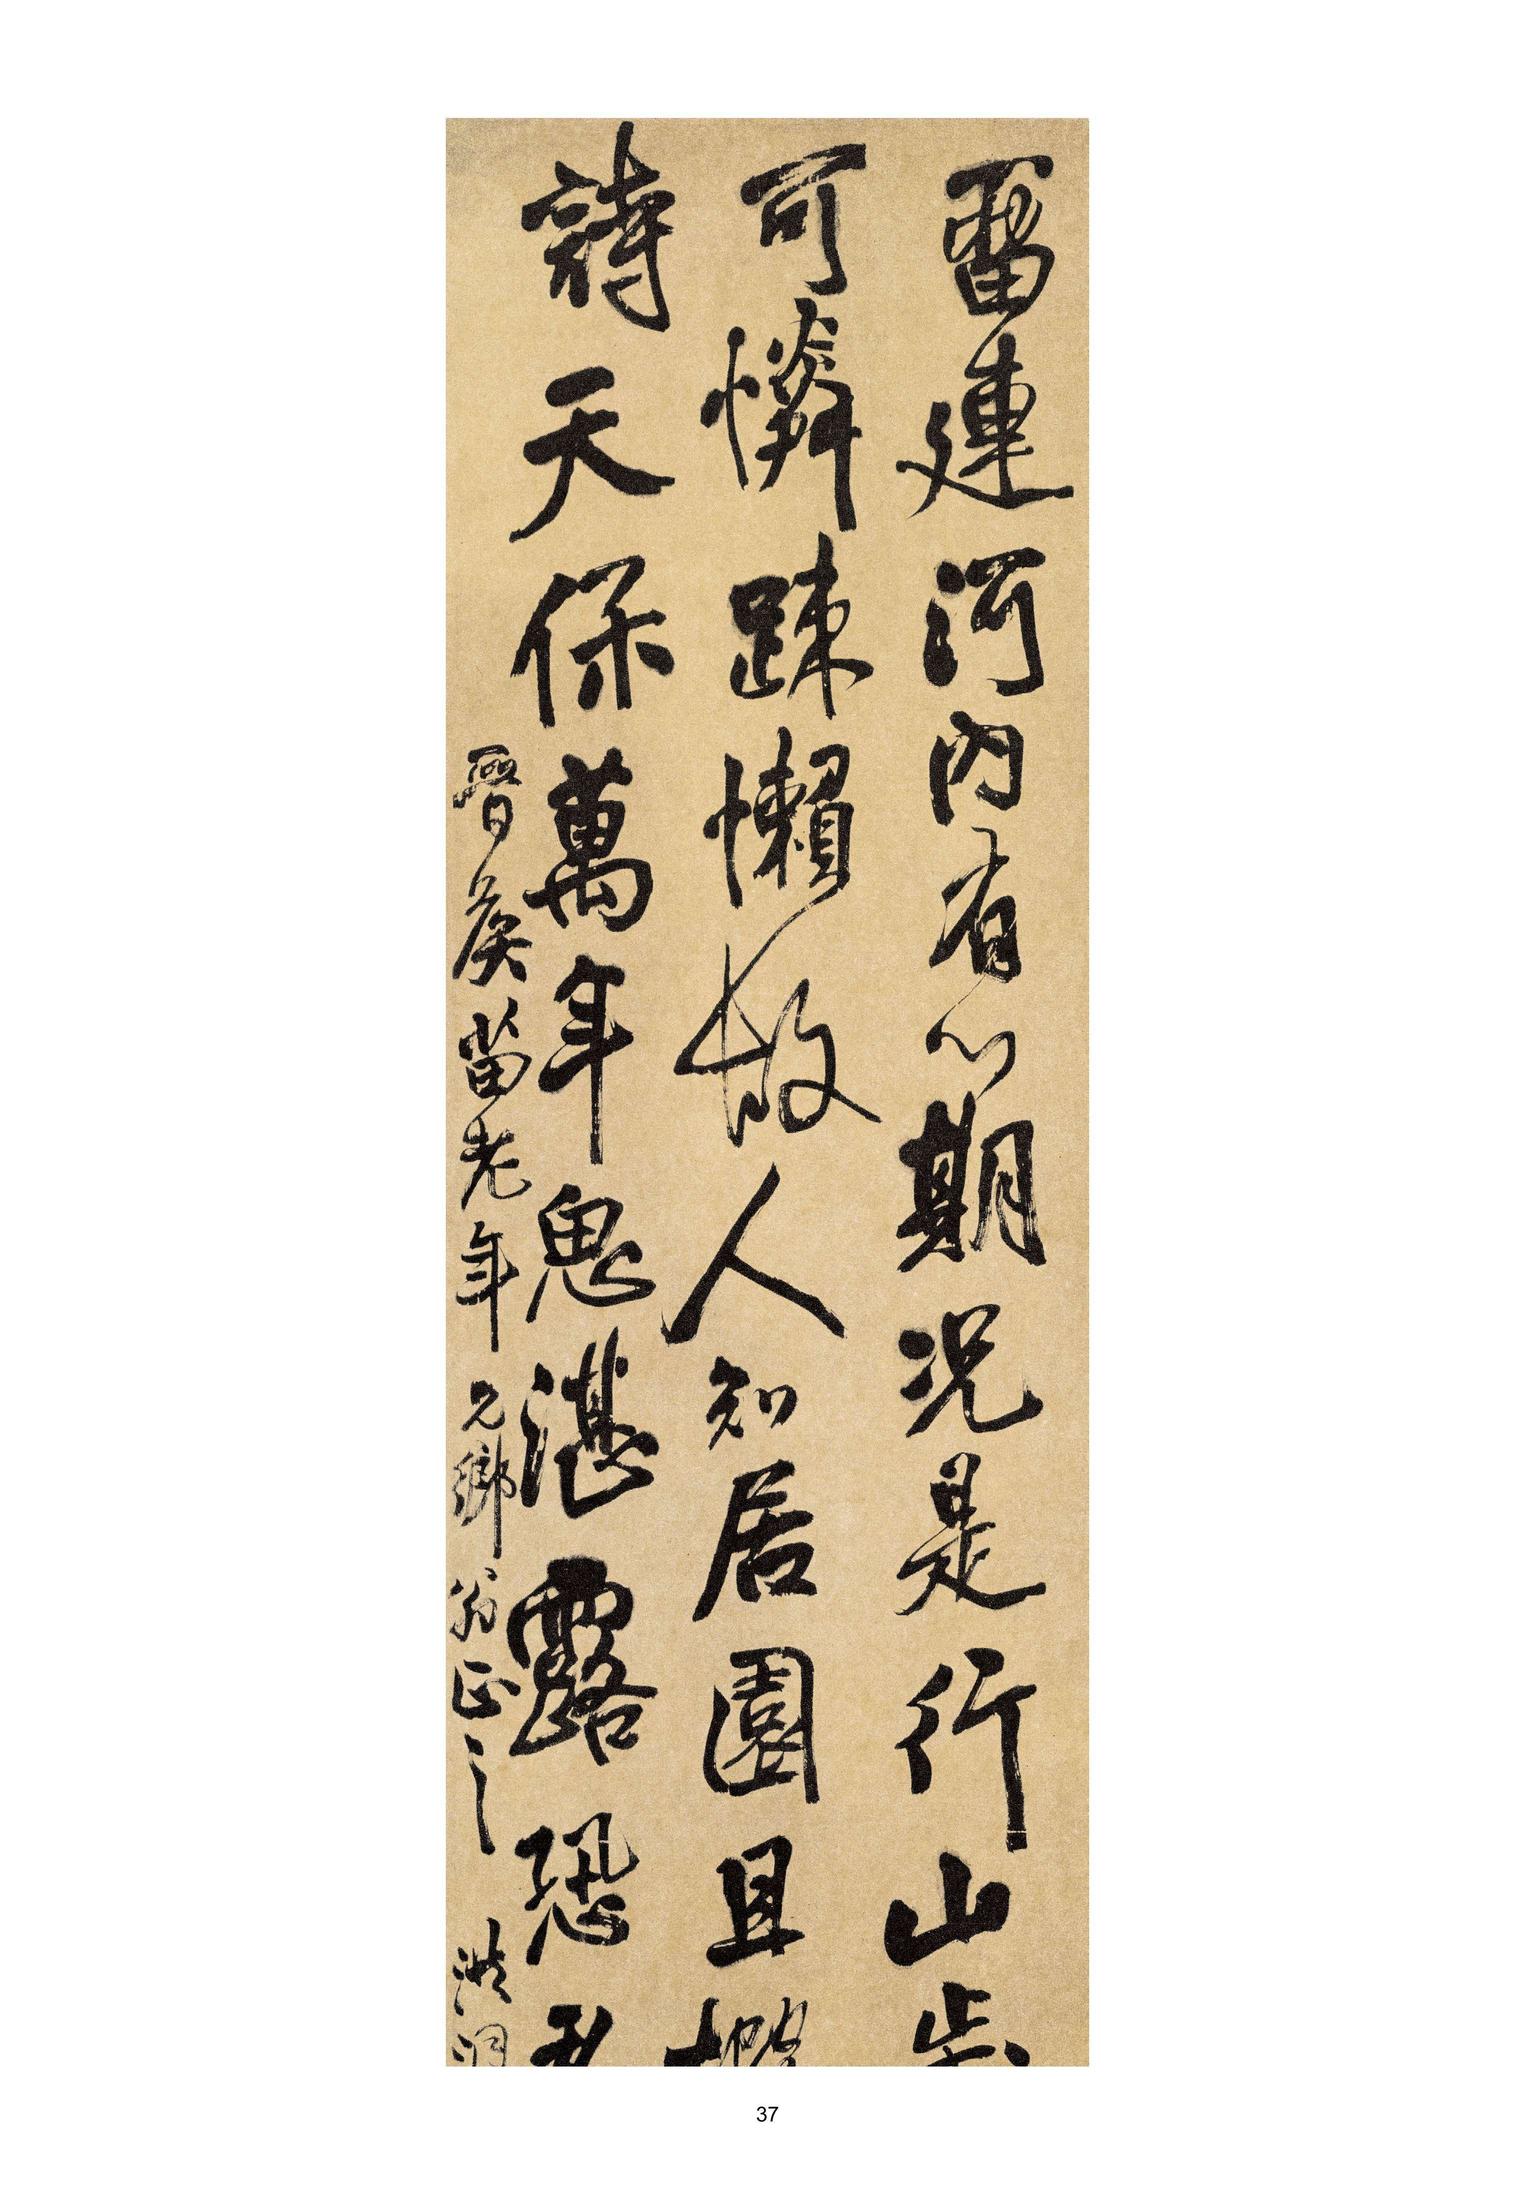 畱連河內有心期況是行山
可憐踈懶故人知居園且
詩天保萬年湛露恐
晉侯苗老年兄鄉翁正之 洪洞
37